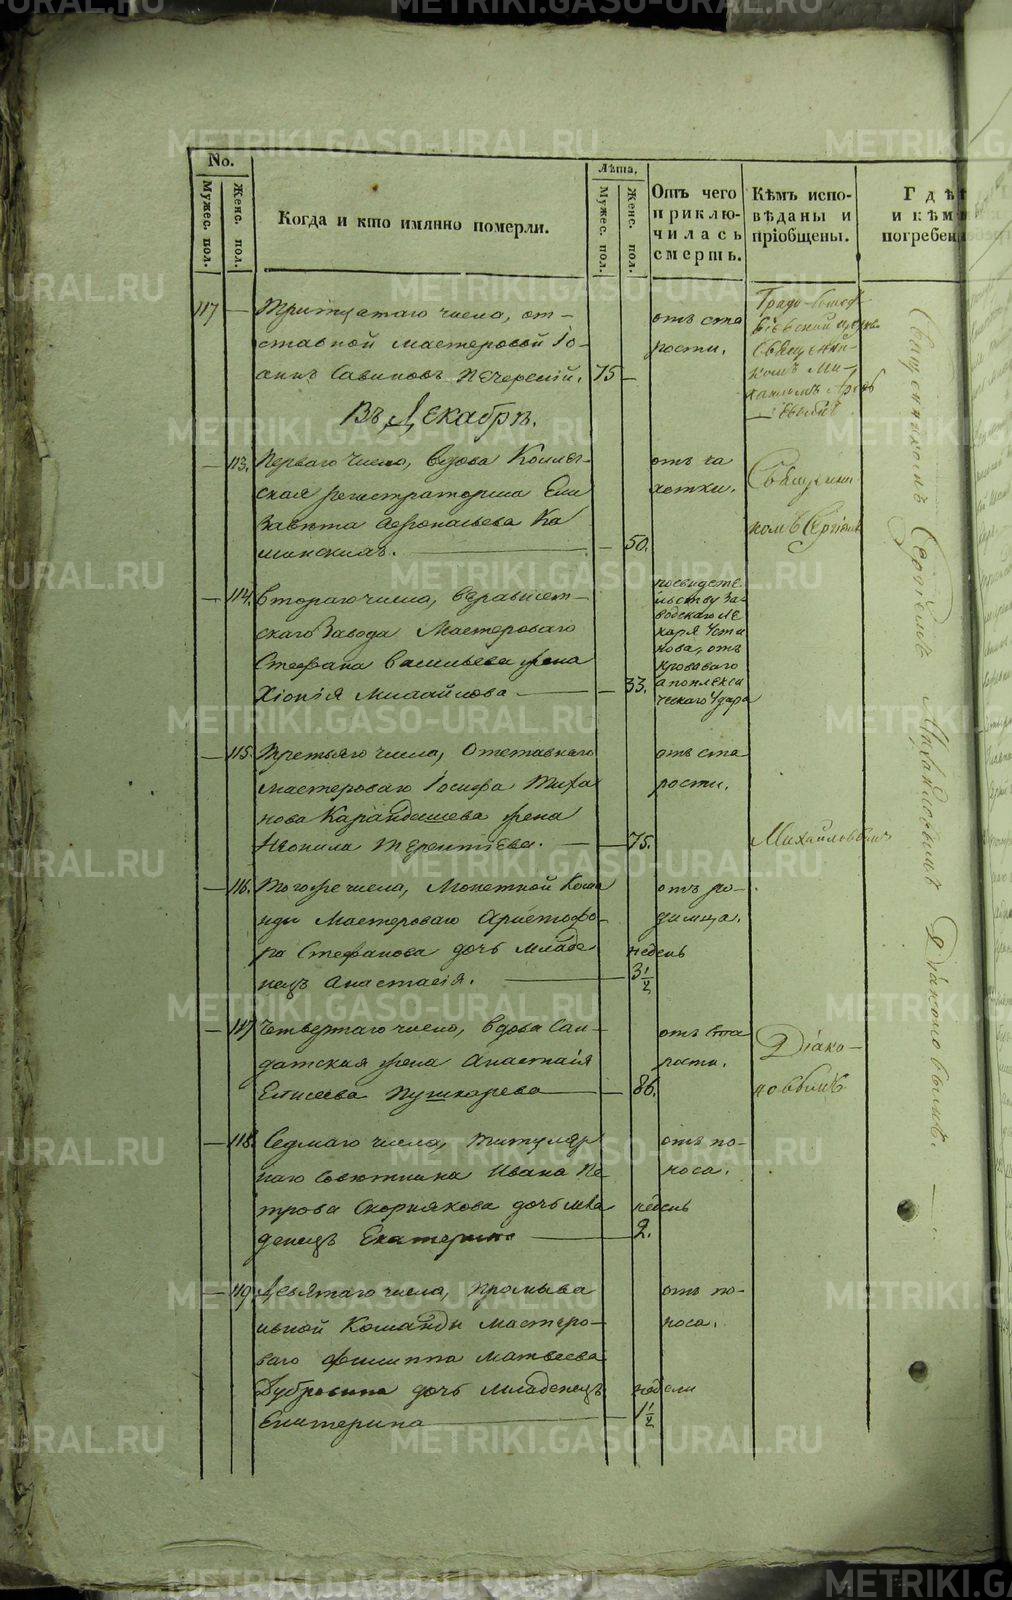 No.
Мужес. пол.
Женс. пол.
Когда и кто имянно померли.
Лѣта.
Мужес. пол.
Женс. пол.
Отъ чего
приклю-
чилась
смерть.
Кѣмъ испо-
вѣданы и
пріобщены.
Гдѣ
и кѣмъ
погребен
117 — Тритцатаго числа, от-
ставной мастеровой Іо-
аннъ Савиновъ Печерскій. 75 —
отъ ста
рости.
Градо-
Священни-
комъ Ми-
хаиломъ
Въ Декабрѣ.
— 113. Перваго числа, вдова Коллеж-
ская регистраторша Ели
завета Ка
минская. — 50.
отъ ча
хотки.
Священни
комъ Сергіемъ
— 114. Втораго числа, Верхъисет-
скаго Завода Мастероваго
Стефана Васильева жена
Хіонія Михайлова — — 33.
по свидете
льству За-
водскаго ле
каря Усти
нова, отъ
кроваваго
апоплекси
ческаго Удара
— 115. Третьяго числа, Отставнаго
мастероваго Іосифа Тиха
нова Карандашева жена
Неонила Терентіева. — 75.
отъ ста
рости.
Михайловымъ
— 116. Того же числа, Монетной Кома
нды Мастероваго Аристофо-
ра Стефанова дочь младе
нецъ Анастасія. —
недель
3 1/2
отъ ро-
димца.
— 117. Четвертаго числа, вдова Сол-
датская жена Анастасія
Елисеева Пушкарева — — 86.
отъ ста
рости.
Діако-
новымъ
— 118. Седмаго числа, Титуляр
наго Советника Ивана Пе
трова Скорнякова дочь мла
денецъ Екатерина —
недель
2.
отъ по-
носа.
— 119. Девятаго числа, Промыва
льной Команды мастеро-
ваго Филиппа Матвеева
Дубровина дочь младенецъ
Екатерина —
недели
1 1/2
отъ по-
носа.
Священникомъ Сергіемъ Михайловымъ Діаконовымъ. —
METRIKI.GASO-URAL.RU